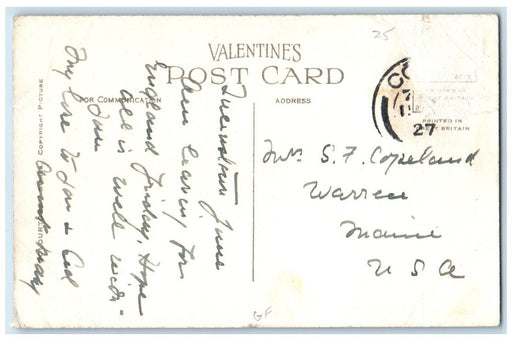 25
VALENTINES
POST CARD
FOR COMMUNICATION
ADDRESS
PRINTED IN
GREAT BRITAIN
27
COPYRIGHT PICTURE
Queenstown June
Am leaving for
England Friday. Hope
all is well with
you
My love to you &
Aunt May
Mrs. S. F. Copeland
Warren
Maine
U S A
GF